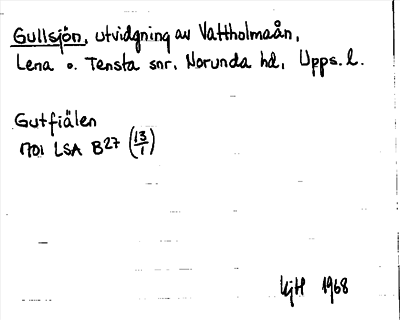 Gullsjön, utvidgning av Vattholmaån,
Lena o. Tensta snr, Norunda hd, Upps. l.
Gutfiälen
1701 LSA B27 (13/1)
HjH 1968